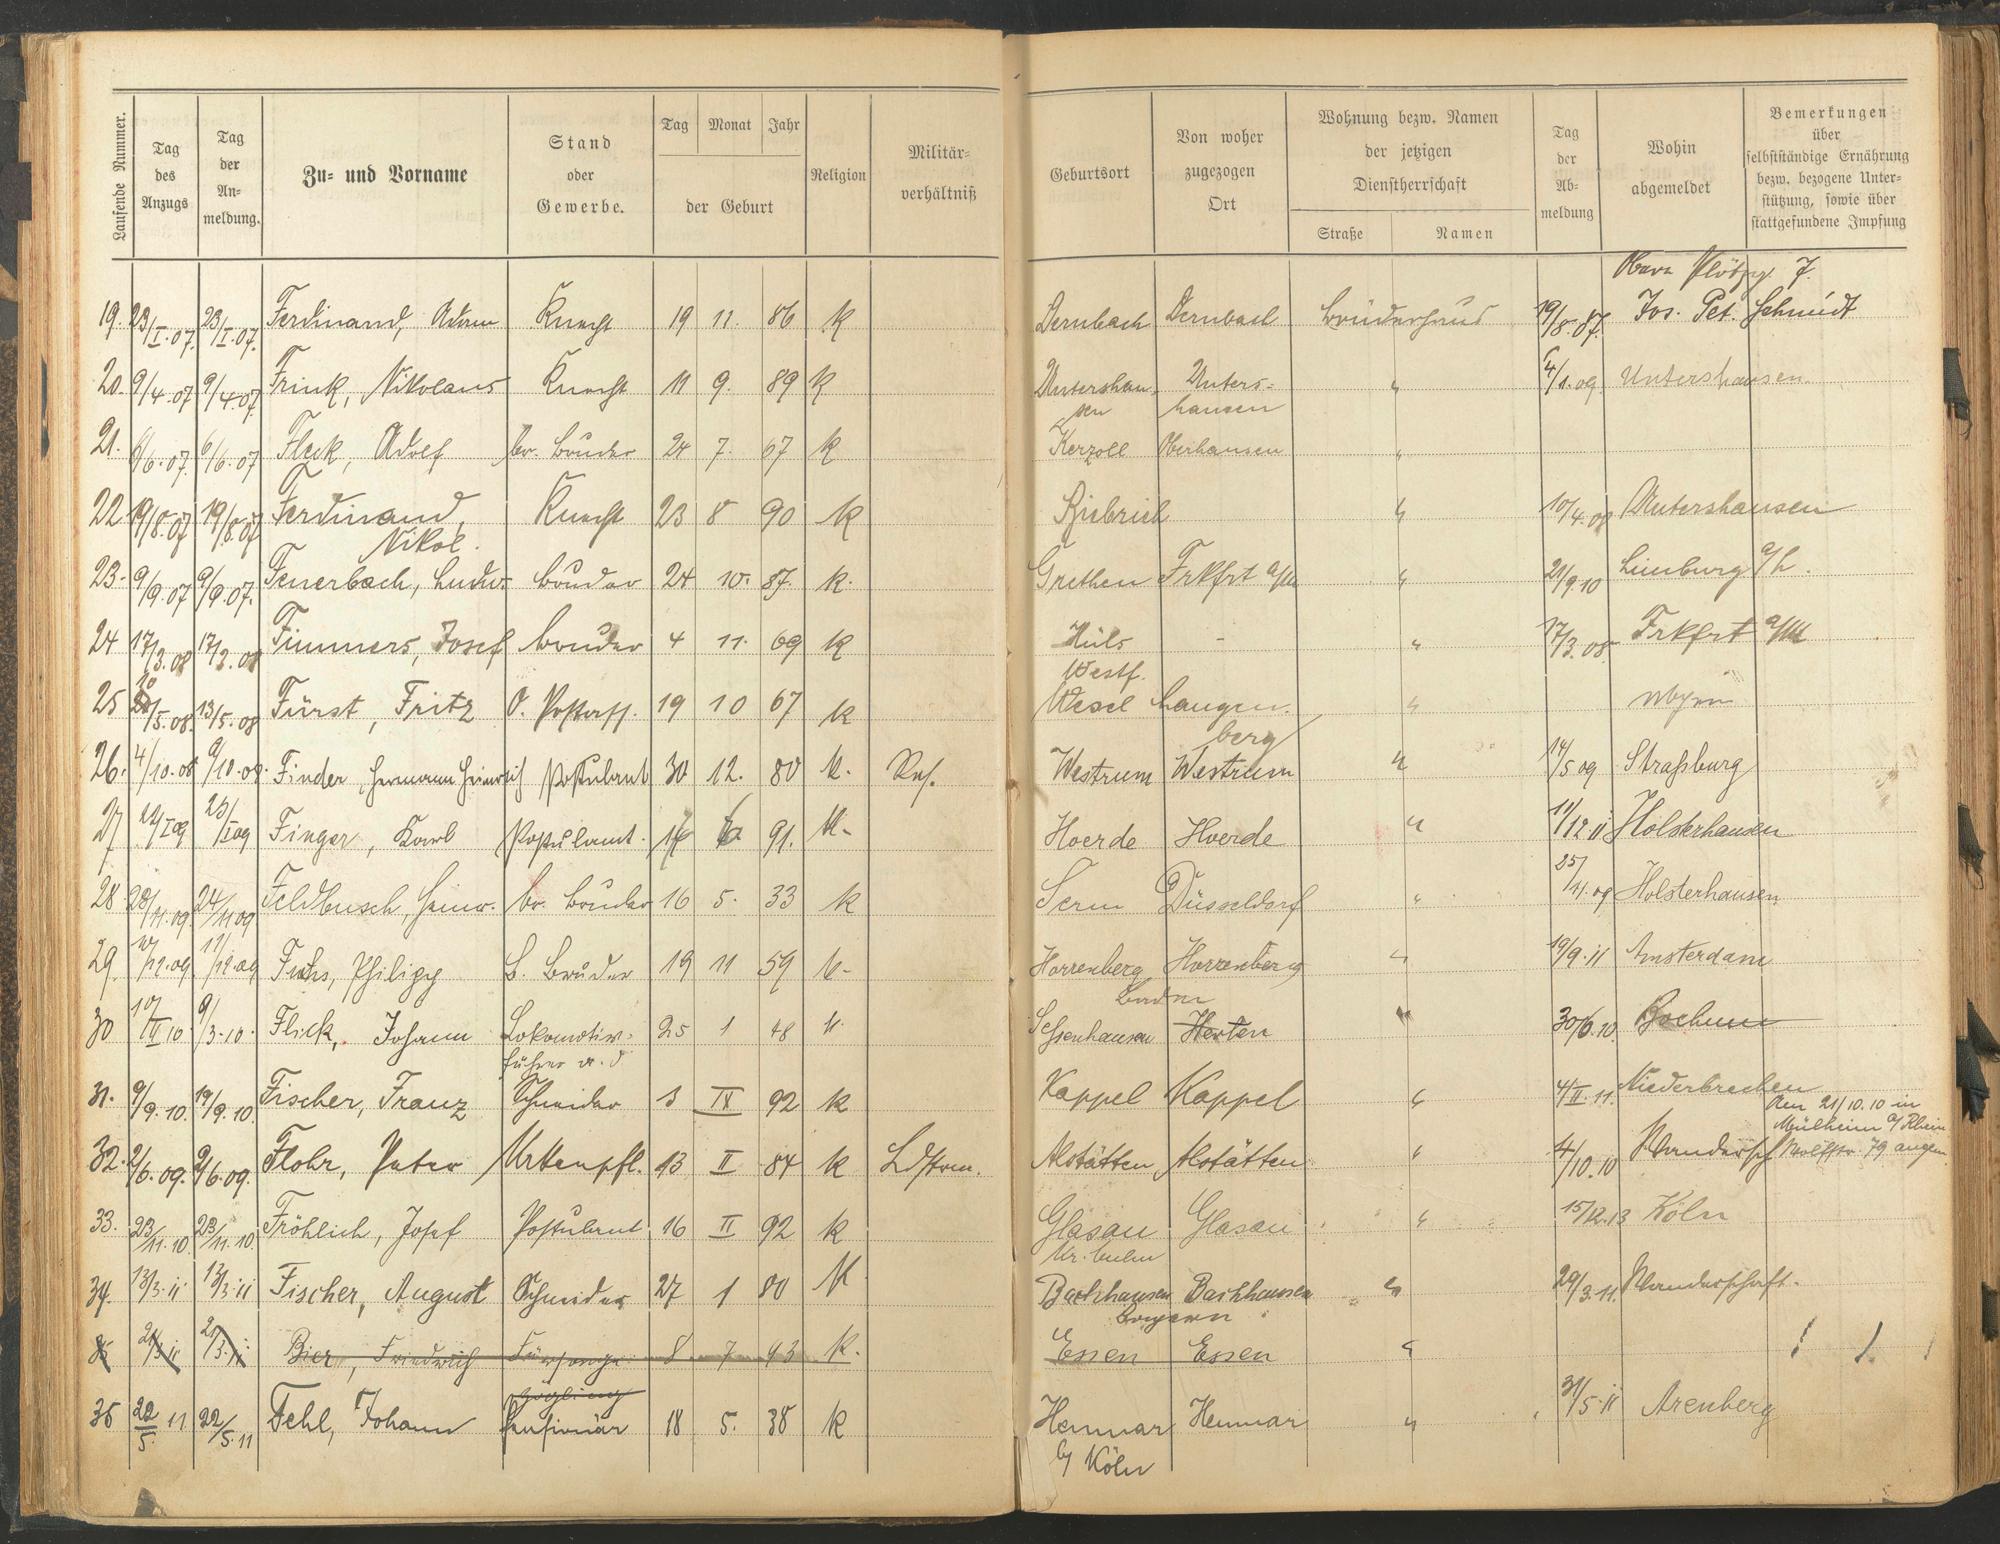 Laufende Nummer.
Tag des Anzugs
Tag der An=meldung.
Zu= und Vorname
Stand oder Gewerbe.
Tag Monat Jahr
der Geburt
Religion
Militär=verhältniß
Geburtsort
Von woher zugezogen Ort
Wohnung bezw. Namen der jetzigen Dienstherrschaft
Straße Namen
Tag der Ab=meldung
Wohin abgemeldet
Bemerkungen über selbstständige Ernährung bezw. bezogene Unter=stützung, sowie über stattgefundene Impfung
19. 23/I.07. 23/I.07. Ferdinand, Adam Knecht 19 11. 86 k Dernbach Dernbach Brüderhaus 19/8.07. Jos. Pet. Schmidt
20. 9/4.07 9/4.07 Frink, Nikolaus Knecht 11 9. 89 k Untershau=sen Unters=hausen " 4/1.09. Untershausen.
21. 6/6.07. 6/6.07 Fleck, Adolf br. Bruder 24 7. 67 k Kerzell Oberhausen "
22 19/8.07 19/8.07 Ferdinand, Nikol. Knecht 23 8 90 k Biebrich " 10/4.08 Untershausen
23. 9/9.07 9/9.07. Feuerbach, Ludw. Bruder 24 10. 87. k. Grethen Frkfrt a/M " 21/9.10 Limburg a/L.
24 17/3.08 17/3.08 Fimmers, Josef Bruder 4 11. 69 k Hüls Westf. - " 17/3.08. Frkfrt a/M
25 10/5.08. 13/5.08 Fürst, Fritz O. Postass. 19 10 67 k Wesel Langen=berg "
26. 4/10.08 9/10.08. Finder, Hermann Heinrich Postulant 30 12. 80 k. Westrum Westrum " 14/5 09 Straßburg
27 22/I 09 23/I 09 Finger, Karl Postulant. 91. k. Hoerde Hoerde " 11/12 11 Holsterhausen
28. 20/11.09. 24/11 09 Feldbusch, Heinr. br. Bruder 16 5. 33 k Serm Düsseldorf " 25/11.09 Holsterhausen
29. 10/12.09. 11/12.09 Fuchs, Philipp b. Bruder 19 11 59 k. Horrenberg Baden Horrenberg " 19/9.11 Amsterdam
30 10/III 10 9/3.10. Flick, Johann Lokomotiv=führer a. d 25 1 48 k. Herten " 30/6.10. Bochum
31. 9/9.10. 19/9.10. Fischer, Franz Schneider 3 IX 92 k Kappel Kappel " 4/II.11. Niederbrechen
Am 21/10.10 in Mülheim a/Rhein Wolfstr. 79 angem.
32. 2/6.09. 9/6.09. Flohr, Peter Krkenpfl. 13 II 84 k Ldstrm. Alstätten Alstätten. " 4/10.10 Wandersch
33. 23/11.10 23/11.10. Fröhlich, Josef Postulant 16 II 92 k Glasau Kr. Culm Glasau " 15/12.13 Köln
34. 13/3.11 13/3.11 Fischer, August Schneider 27 1 80 k Bachhausen Bayern Bachhausen " 29/3.11. Wanderschaft.
35 21/3 11 21/3.11 Bier, Friedrich Fürsorge=zögling 8 7 93 k. Essen Essen "
35 22/5. 11 22/5.11 Fehl, Johann Pensionär 18 5. 38 k Heumar b/ Köln Heumar " 31/5.11 Arenberg